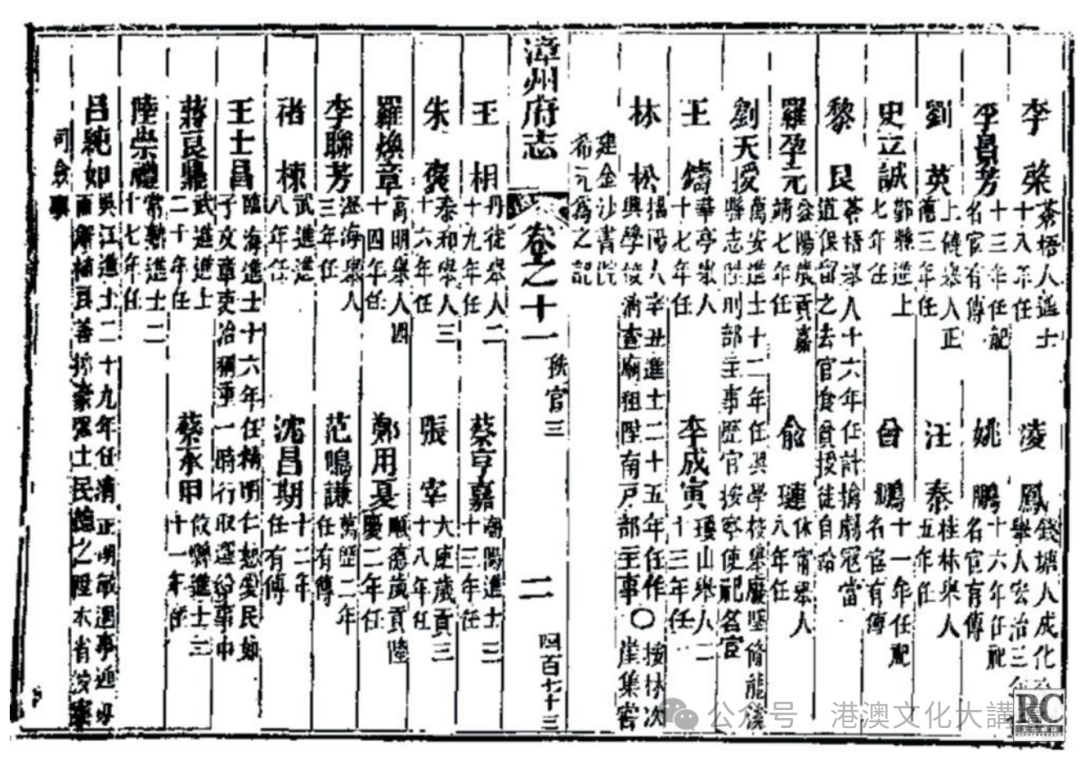 李榮 蒼梧人進士十八年任 凌鳳 錢塘人成化舉人宏治三年
李員芳 十三年任祀名宦有傳 姚鵬 十六年任祀名宦有傳
劉英 上饒舉人正德三年任 汪泰 桂林舉人五年任
史立誠 鄞縣進士七年任 曾鵬 十一年任祀名宦有傳
黎艮 蒼梧舉人十六年任計擒劇冦當道保留之去官食貧授徒自給
羅孕元 益陽歲貢嘉靖七年任 俞璉 休甯舉人八年任
劉天授 萬安進士十二年任興學校舉廢墜脩龍溪縣志陞刑部主事歷官按察使祀名宦
王鑄 華亭舉人十七年任 李成寅 瓊山舉人二十三年任
林松 揭陽人辛丑進士二十五年任作興學校清查廟租陞南戶部主事○按林次崖集嘗
建金沙書院希元為之記
漳州府志 卷之十一 秩官三 二 四百七十三
王相 丹徒舉人二十九年任 蔡亨嘉 潮陽進士三十三年任
朱袞 泰和舉人三十六年任 張宰 大庾歲貢三十八年任
羅煥章 高明舉人四十四年任 鄭用夏 順德歲貢隆慶二年任
李聯芳 澄海舉人三年任 范鳴謙 萬歷二年任有傳
褚棟 武進進士八年任 沈昌期 十二年任有傳
王士昌 臨海進士十六年任精明仁恕愛民如子文章吏治稱重一時行取選給事中
蔣良鼎 武進進士二十年任 蔡承甲 攸縣進士二十一年任
陸崇禮 常熟進士二十七年任
呂純如 吳江進士二十九年任清正明敏遇事迎刃而解植良善抑豪强士民德之陞本省按察
司僉事
公众号·港澳文化大講
RC